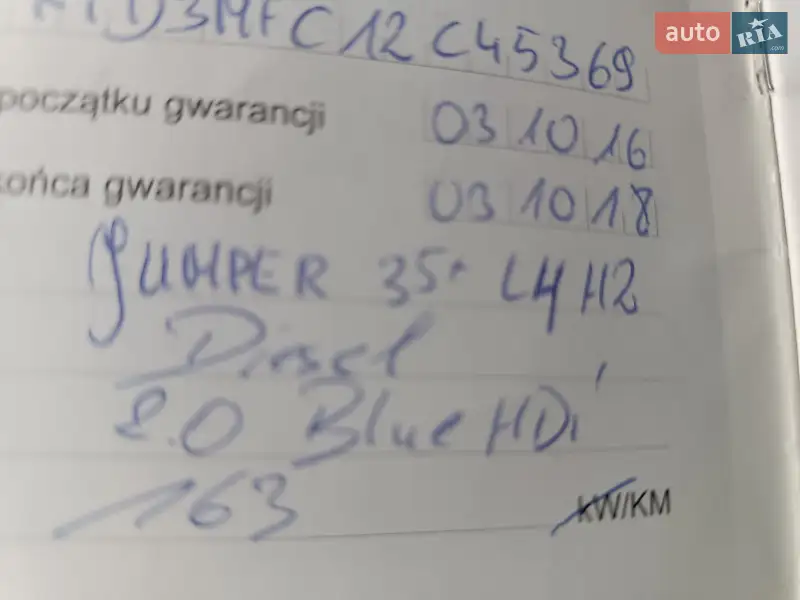 auto RIA .com
D3MFC12C45369
początku gwarancji 03 10 16
końca gwarancji 03 10 18
JUMPER 35+ L4H2
Diesel
2.0 Blue HDi
163 kW/KM